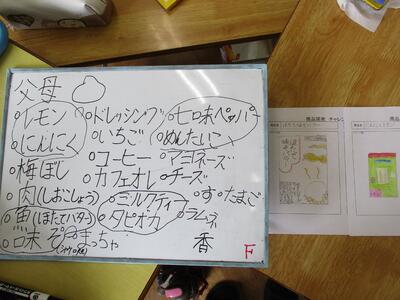 父母
○レモン ○ドレッシング ○七味ペッパー
○にんにく ○いちご ○めんたいこ
○梅ぼし ○コーヒー ○マヨネーズ
○肉(しおこしょう) ○カフェオレ ○チーズ
○魚(ほたてバター) ○ミルクティー ○す ○たまご
○タピオカ ○ラムネ
まっちゃ 香 F
商品開発 チャレン